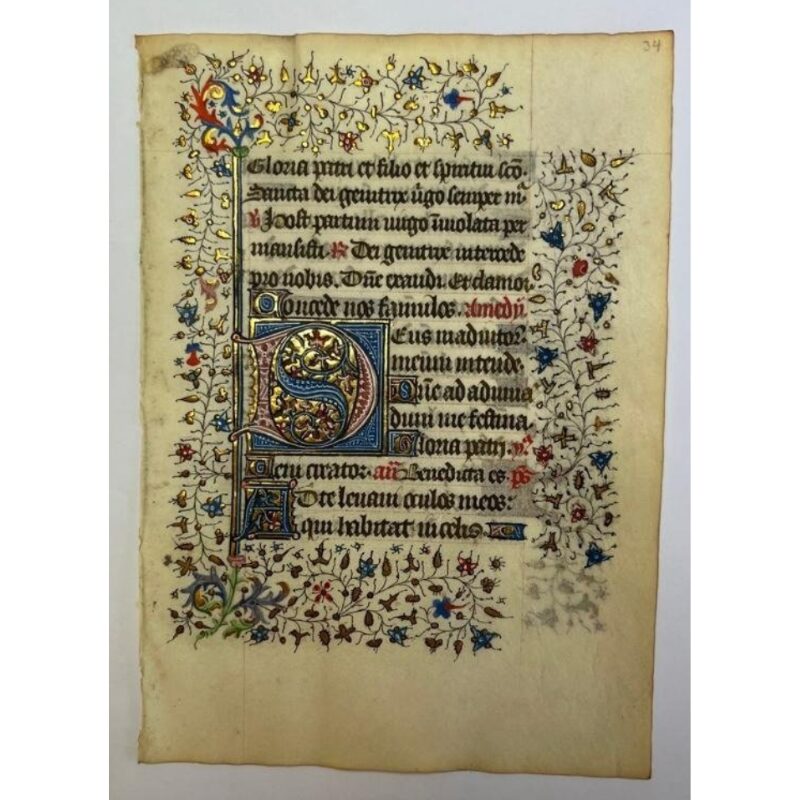 34
Gloria patri et filio et spiritui scō.
Sancta dei genitrix ūgo semper m̄
℣ Post partum uirgo īuiolata per
mansisti. ℟ Dei genitrix intercede
pro nobis. Dn̄e exaudi. Et clamor
Concede nos famulos. Ad medȳ.
Deus in adiutor̄
meum intende.
Dn̄e ad adiuua
dum me festina.
Gloria patri.
Sicut erat or. añ Benedicta es. p̄s
Ad te leuaui oculos meos:
qui habitat in celis